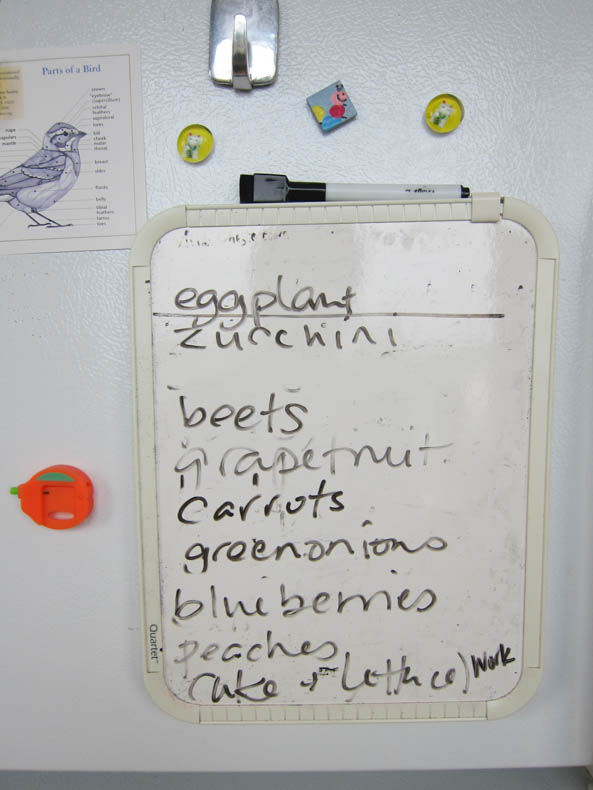 Parts of a Bird
crown
"eyebrow"
(supercilium)
orbital
feathers
lores
bill
cheek
malar
throat
nape
mantle
breast
sides
flanks
belly
tibial
feathers
tarsus
toes
eggplant
zucchini
beets
grapefruit
carrots
green onions
blueberries
peaches
cake + (lettuce) Work
Quartet